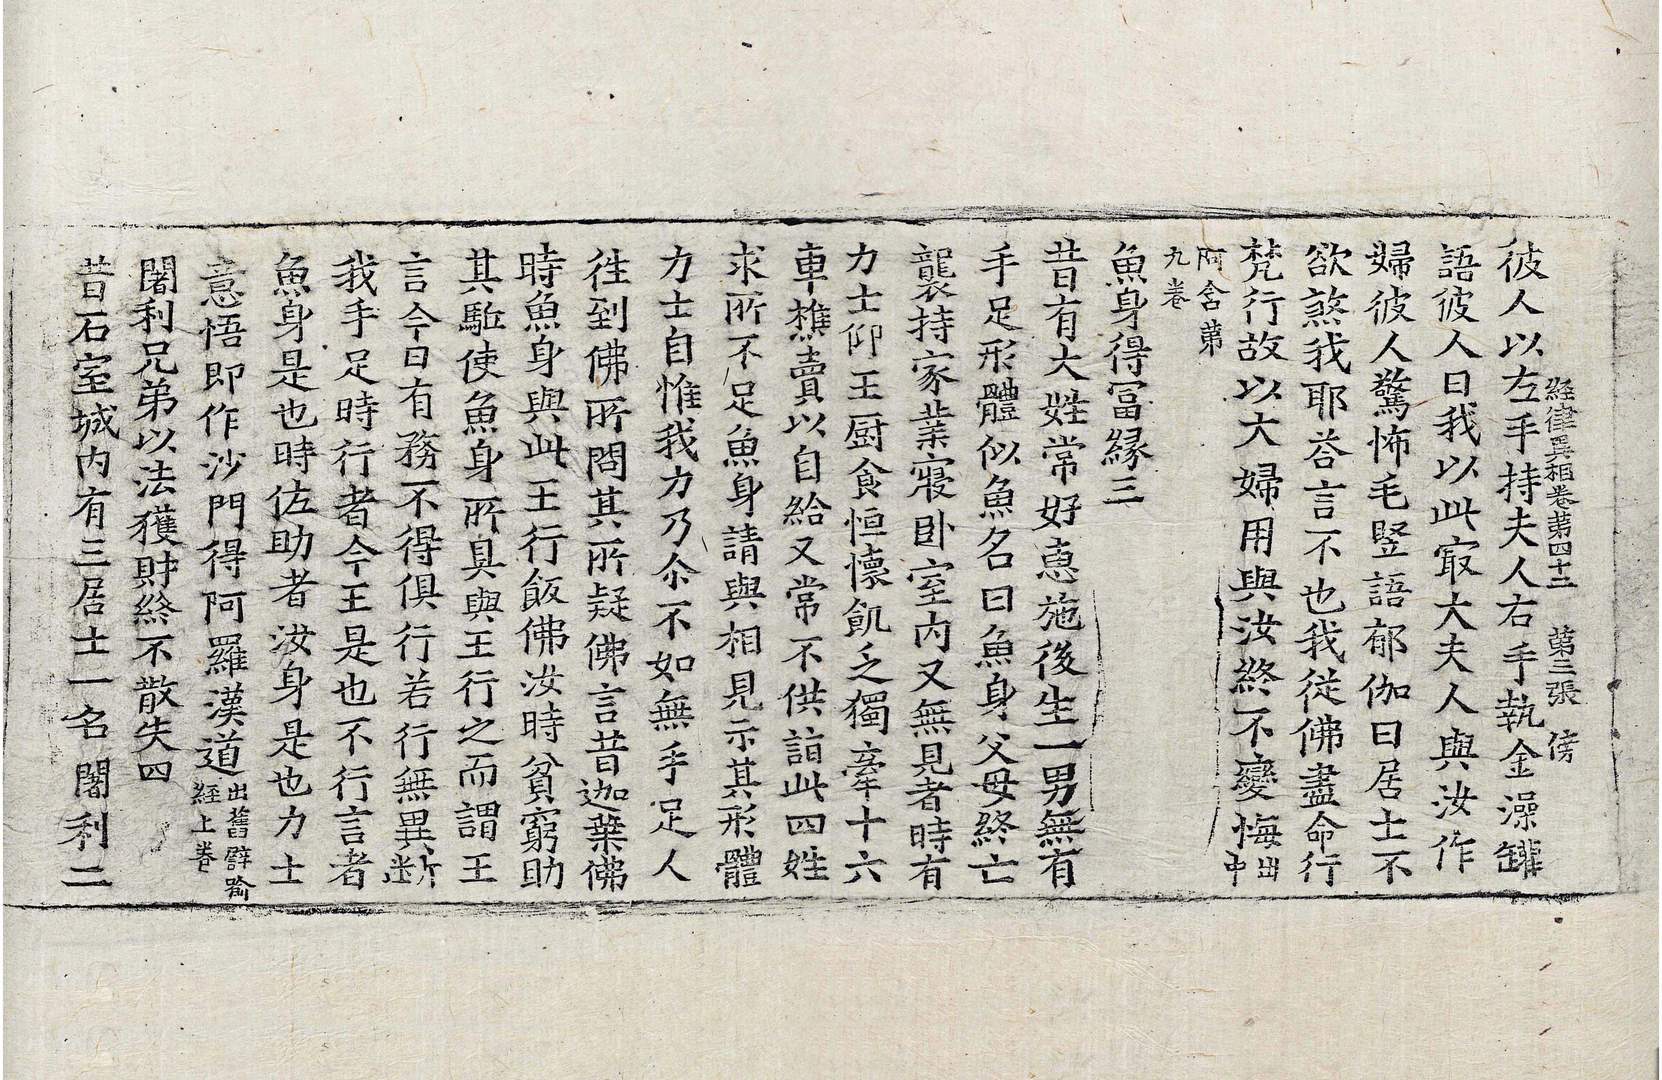 經律異相卷第四十二 第三張 傍
彼人以左手持夫人右手執金澡罐
語彼人曰我以此㝡大夫人與汝作
婦彼人驚怖毛竪語郁伽曰居士不
欲煞我耶荅言不也我從佛盡命行
梵行故以大婦用與汝終不變悔出中
阿含第
九卷
魚身得冨緣三
昔有大姓常好惠施後生一男無有
手足形體似魚名曰魚身父母終亡
襲持家業寢卧室内又無見者時有
力士仰王厨食恒懷飢乏獨牽十六
車樵賣以自給又常不供詣此四姓
求所不足魚身請與相見示其形體
力士自惟我力乃尒不如無手足人
徃到佛所問其所疑佛言昔迦葉佛
時魚身與此王行飯佛汝時貧窮助
其駈使魚身所具與王行之而謂王
言今日有務不得俱行若行無異断
我手足時行者今王是也不行言者
魚身是也時佐助者汝身是也力士
意悟即作沙門得阿羅漢道出舊譬喻
經上卷
闍利兄弟以法獲財終不散失四
昔石室城内有三居士一名闍利二